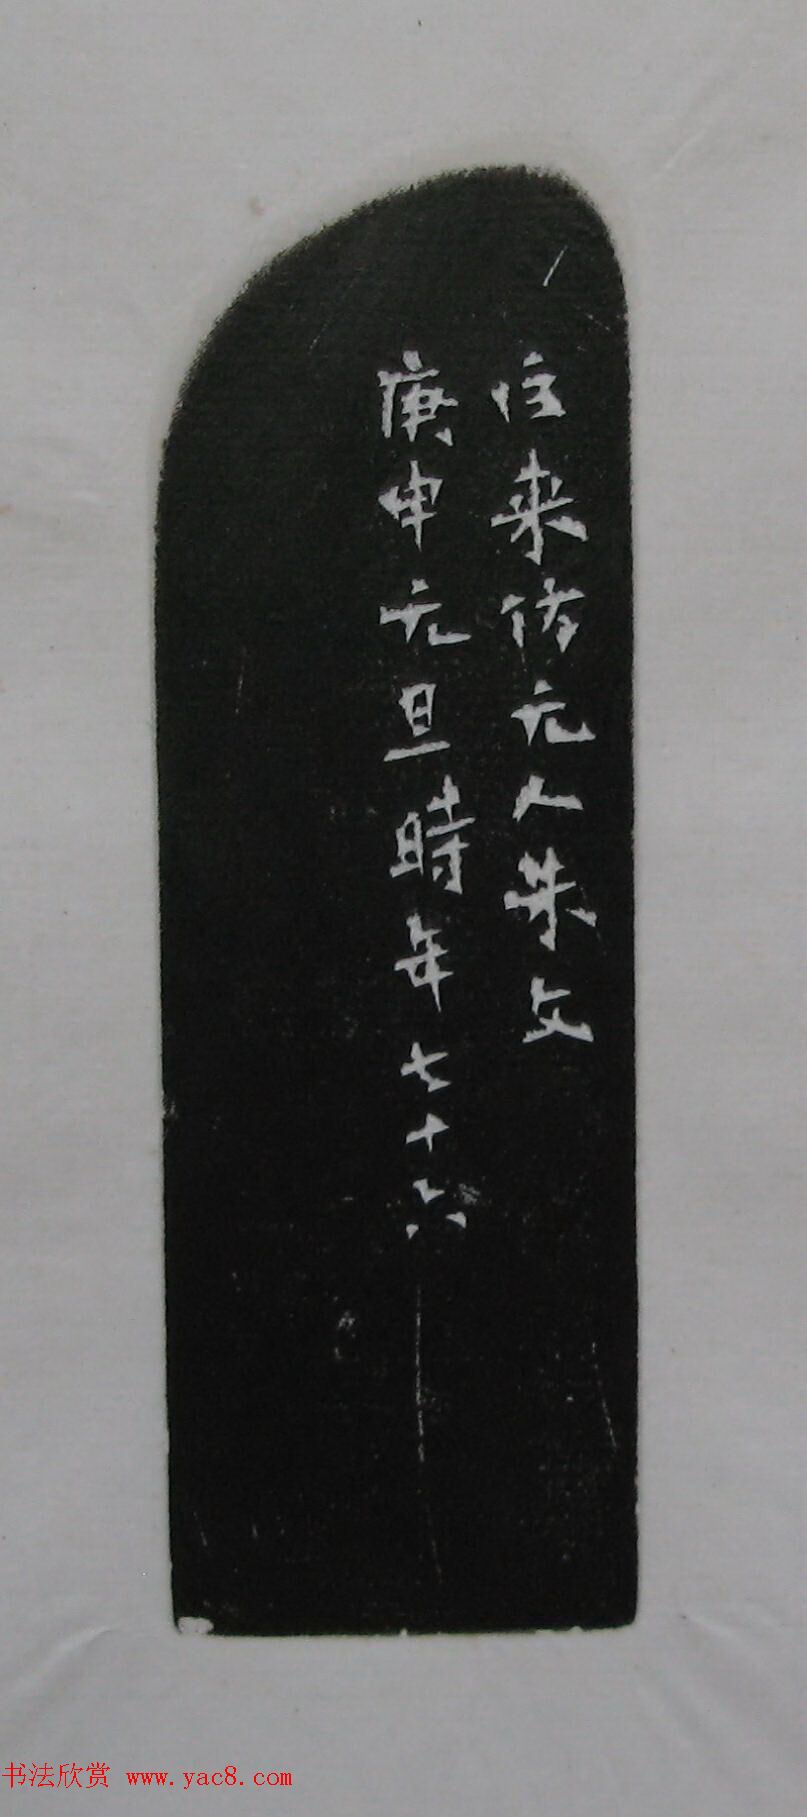 巨来仿元人朱文
庚申元旦時年七十六
书法欣赏 www.yac8.com